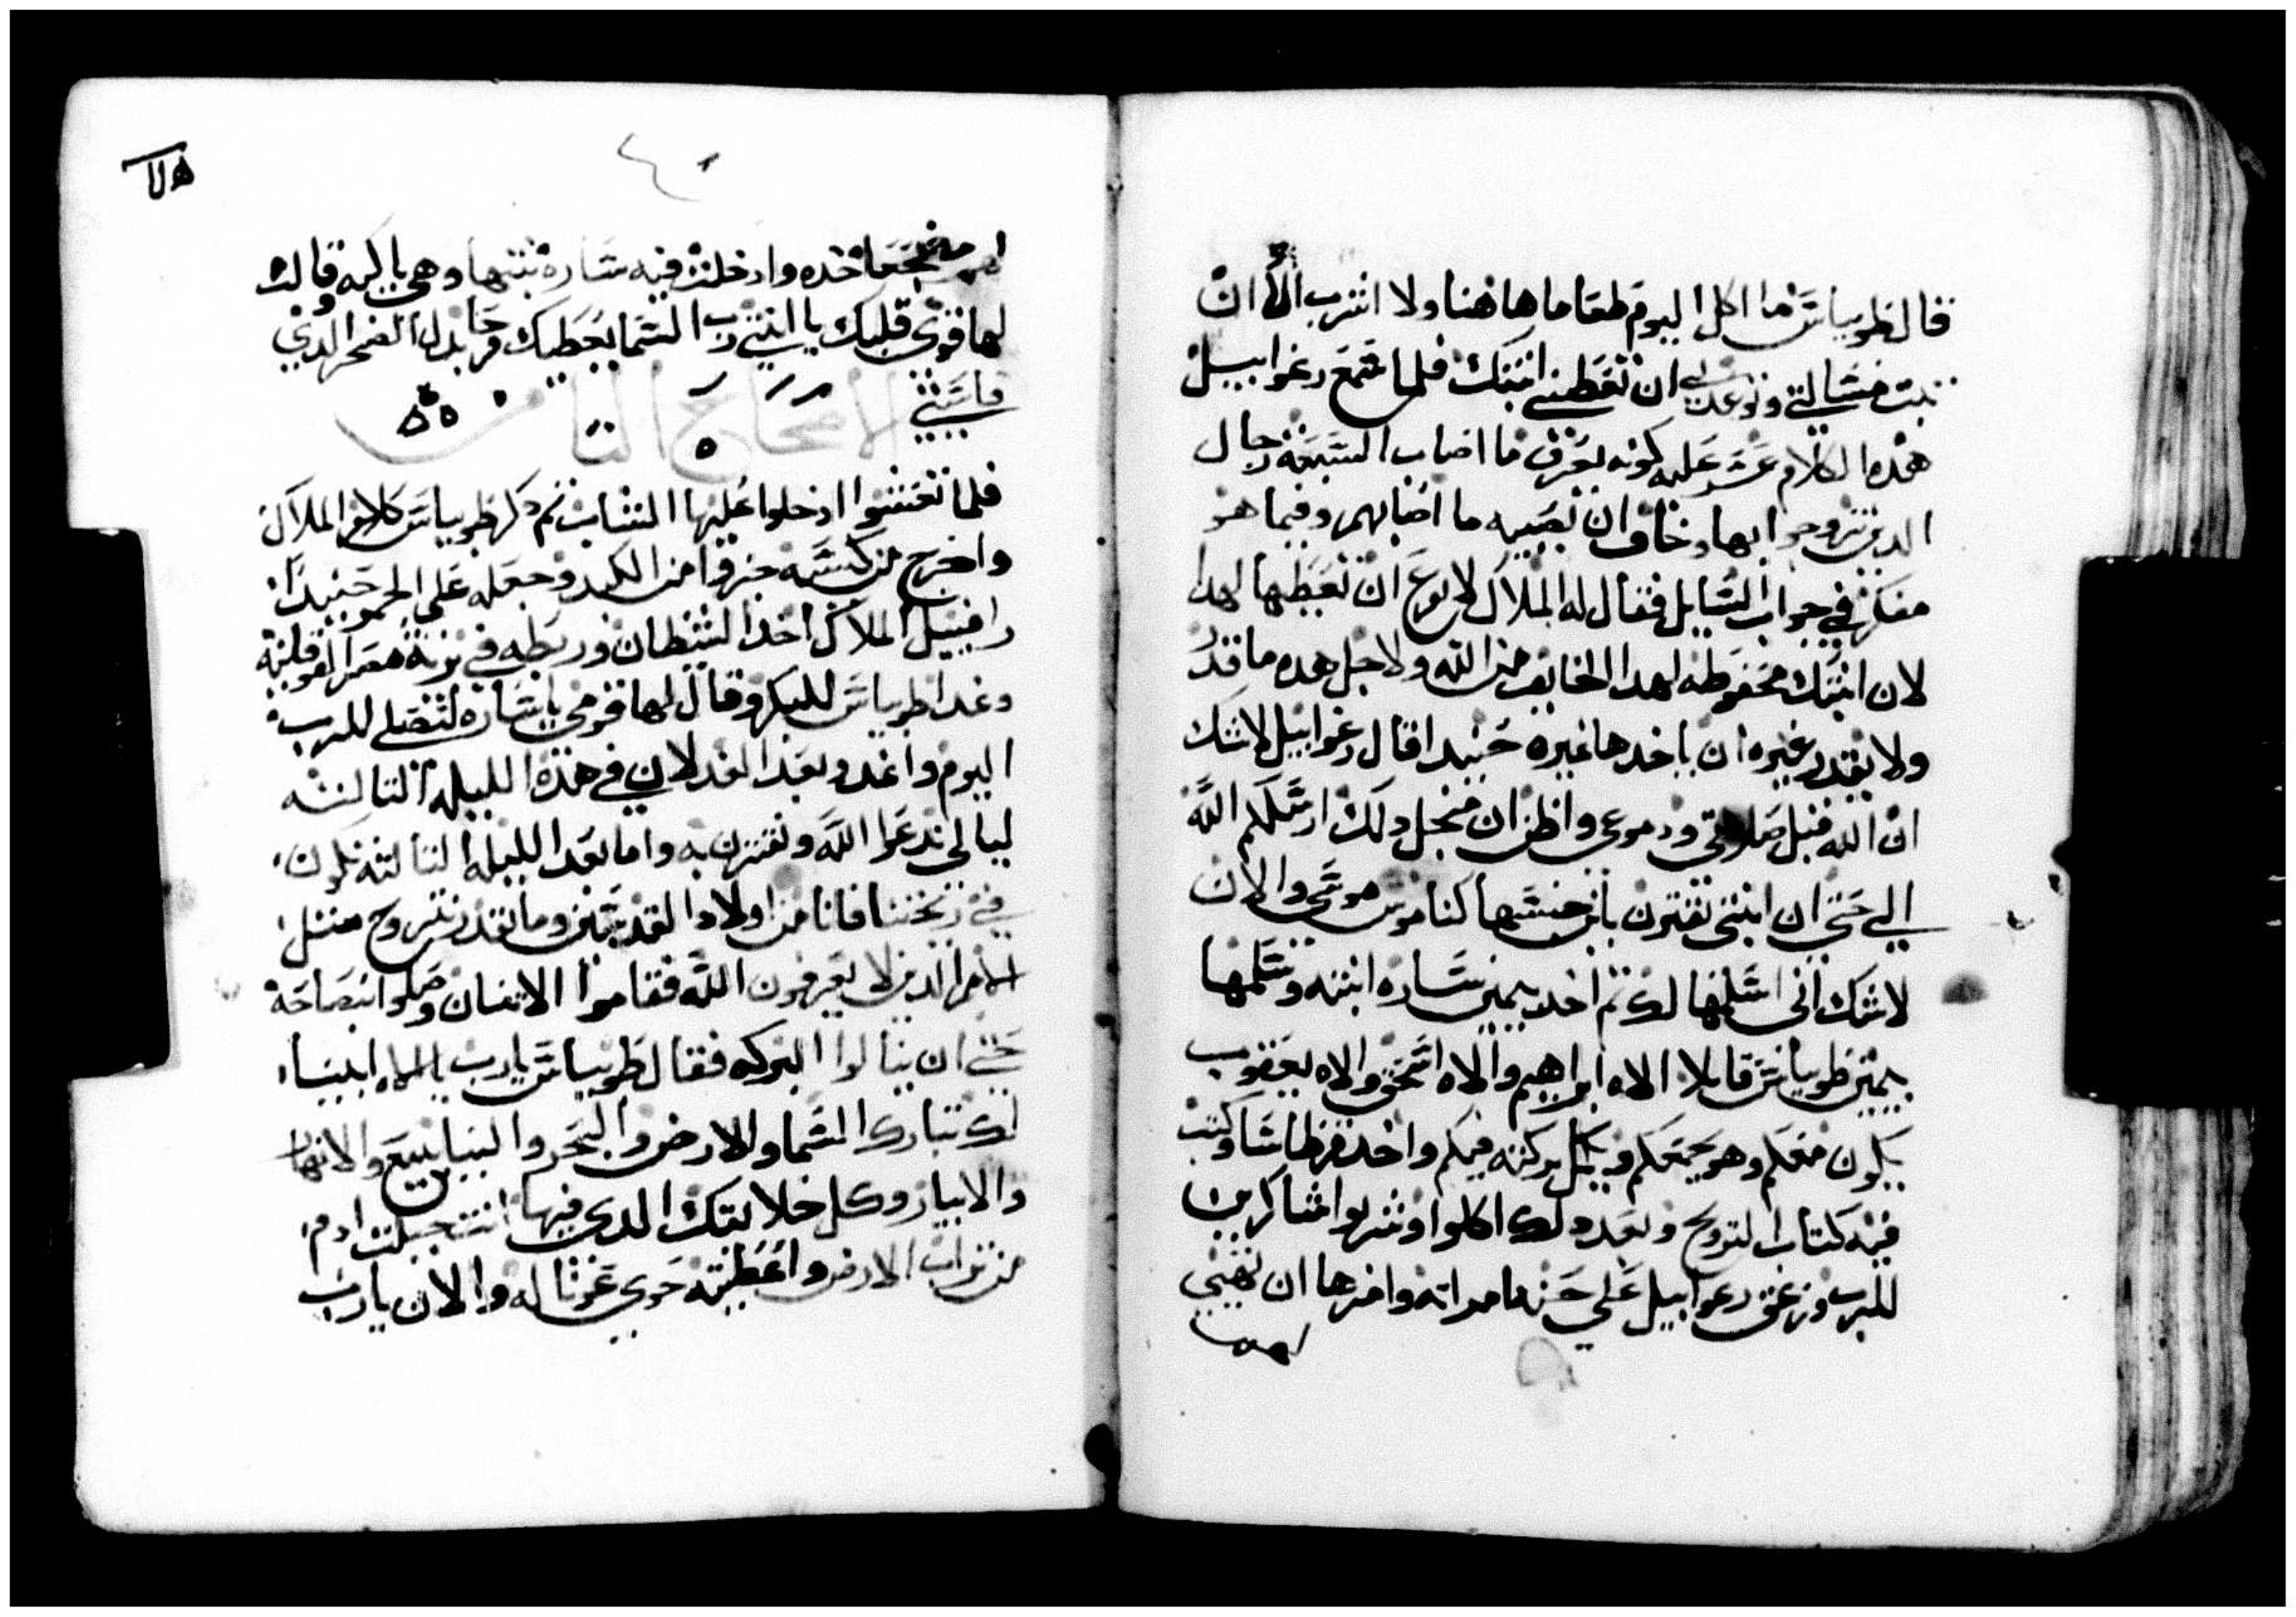 قال طوبياس ما اكل اليوم طعاما هاهنا ولا اشرب الا ان
تبت مسالتي وتوعدني ان تعطيني ابنتك فلما سمع رعوابيل
هذه الكلام عسر عليه كونه يعرف ما اصاب السبعة رجال
الدين تزوجوا بها وخاف ان تصيبه ما اصابهم وفيما هو
مفكر في جواب السايل فقال له الملاك لا توع ان تعطيها لهدا
لان ابنتك محفوظه لهدا الخايف من الله ولاجل هده ما قدر
ولا يقتدر غيره ان ياخدها غيره حنيدا قال رعوابيل لا شك
ان الله قبل صلوتي ودموعي واظن ان منجل دلك ارسلكم الله
الي حتي ان ابنتي تقترن بابن جنسها كناموس موسي والان
لا شك اني اسلمها لك تم اخد يمين ساره ابنته وسلمها
بيمين طوبياس قايلا الاه ابراهيم والاه اسحق والاه يعقوب
يكون معكم وهو يجمعكم ويكمل بركته فيكم واخد قرطاسا وكتب
فيه كتاب التزويج وبعد دلك اكلوا وشربوا شاكرين
للرب وزعق رعوابيل علي حنه امراته وامرها ان تهيي
لهم
لهم مضجعا خده وادخلت فيه ساره بنتها وهي باكيه وقالت
لها قوي قلبك يا ابنتي رب السما يعطيك فرحا بدل الضجر الدي
قاسيتي
الاصحاح التامن
فلما تعشوا ادخلوا عليها الشاب تم دكر طوبياس كلام الملاك
واخرج من كيسه جزوا من الكبد وجعله علي الجمر حنيدا
رافييل الملاك اخد الشيطان وربطه في برية مصر الفوقانيه
وغدا طوبياس للبكر وقال لها قومي يا ساره لنصلي للرب
اليوم واغدو وبعد الغد لان في هذه الليله التالته
ليالي ندعوا الله ونقترن به واما بعد الليله التالته نكون
في زيختنا فانا من اولاد القديسين وما نقدر نتزوج متل
الامم الدين لا يعرفون الله فقاموا الاتنان وصلوا بنصاحة
حتي ان ينالوا البركه فقال طوبياس يارب يا الاه ابينا
لك تبارك السما والارض والبحر والينابيع والانهار
والابيار وكل خلايقك الدي فيها انت جبلت ادم
من تراب الارض واعطيته حوي عونا له والان يارب